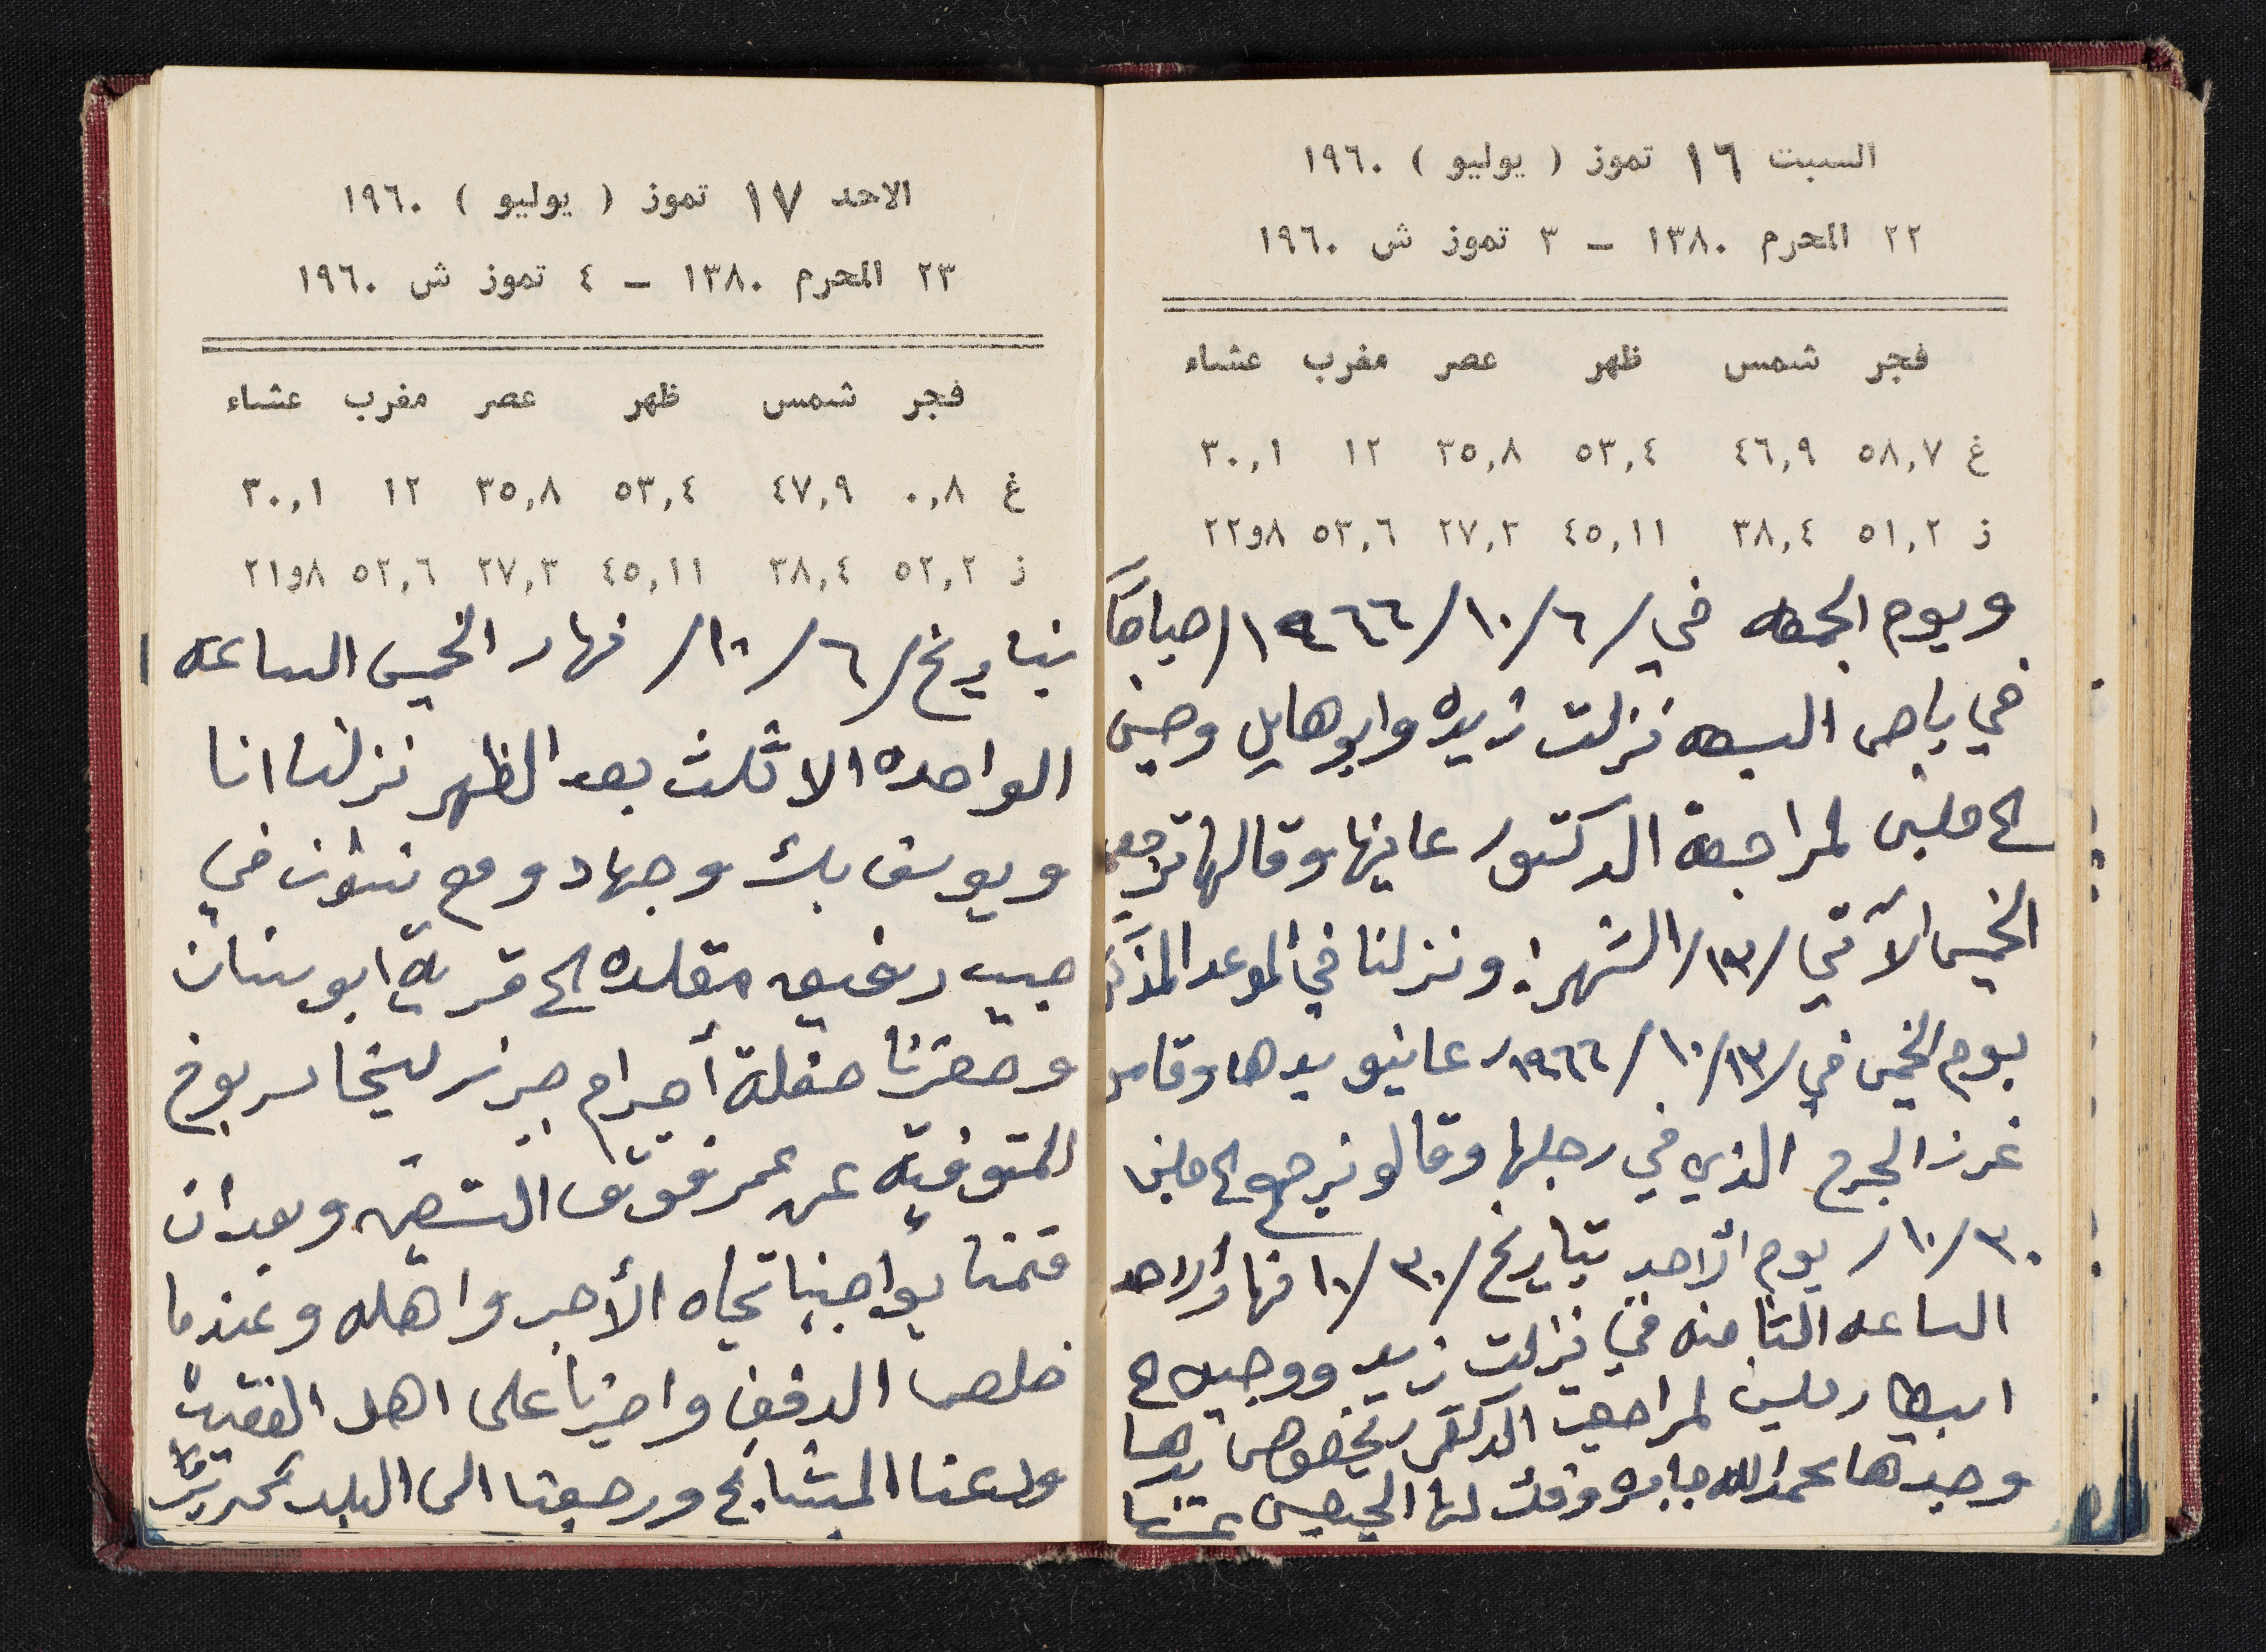 السبت ١٦ تموز ( يوليو ) ١٩٦٠
٢٢ المحرم ١٣٨٠ – ٣ تموز ش ١٩٦٠
فجر شمس ظهر عصر مغرب عشاء
غ ٥٨,٧ ٤٦,٩ ٥٣,٤ ٣٥,٨ ١٢ ٣٠,١
ز ٥١,٢ ٣٨,٤ ٤٥,١١ ٢٧,٣ ٥٣,٦ ٨و٢٢
ويوم الجمعه في /١٠/٦/ ١٩٦٦/صباحاً
في باص السبعه نزلت زيده وابو هايل وحين
الى لمراجعة الدكتور عاينها وقالها تراجعه
الخميس الآتي /١٣/ الشهر: ونزلنا في الموعد
يوم الخميس في /١٠/١٣/ ١٩٦٦/ عاينو يدها
غرز الجرح الذي في رجلها وقالو نرجع الى
١٠/٣٠/ يوم الأحد بتاريخ /١٠/٣٠ نهار الاحد
الساعه الثامنه في نزلت زيد
لمراجعت الدكتر بخصوص يدها
وجدها بحمد الله جابره وفك لها الجبصين عنها
الاحد ١٧ تموز ( يوليو ) ١٩٦٠
٢٣ المحرم ١٣٨٠ – ٤ تموز ش ١٩٦٠
فجر شمس ظهر عصر مغرب عشاء
غ ٠,٨ ٤٧,٩ ٥٣,٤ ٣٥,٨ ١٢ ٣٠,١
ز ٥٢,٢ ٣٨,٤ ٤٥,١١ ٢٧,٣ ٥٢,٦ ٨و٢١
بتاريخ /١٠/٦/ نهار الخميس الساعه ١
الواحده الا ثلث بعد الظهر نزلنا انا
ويوسف بك وجهاد ومع في
جيب رفيق مقلده الى قرية ابو سنان
وحضرنا حفلة أجرام
المتوفيه عن عمر فوق التسعين وبعد ان
قمنا بواجبنا تجاه الأجر واهله وعندما
خلص الدفن على اهل الفقيده
ودعنا المشايخ ورجعنا الى البلد